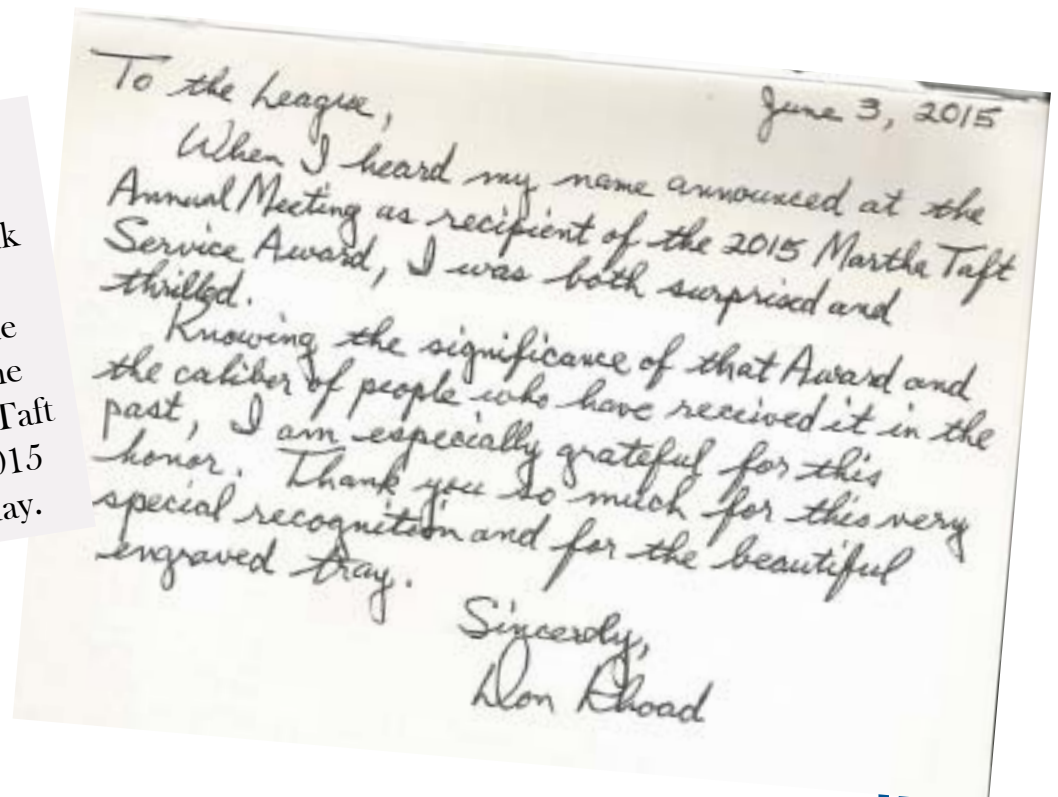 To the League,
June 3, 2015
When I heard my name announced at the
Annual Meeting as recipient of the 2015 Martha Taft
Service Award, I was both surprised and
thrilled.
Knowing the significance of that Award and
the caliber of people who have received it in the
past, I am especially grateful for this
honor. Thank you so much for this very
special recognition and for the beautiful
engraved tray.
Sincerely,
Don Rhoad
Taft